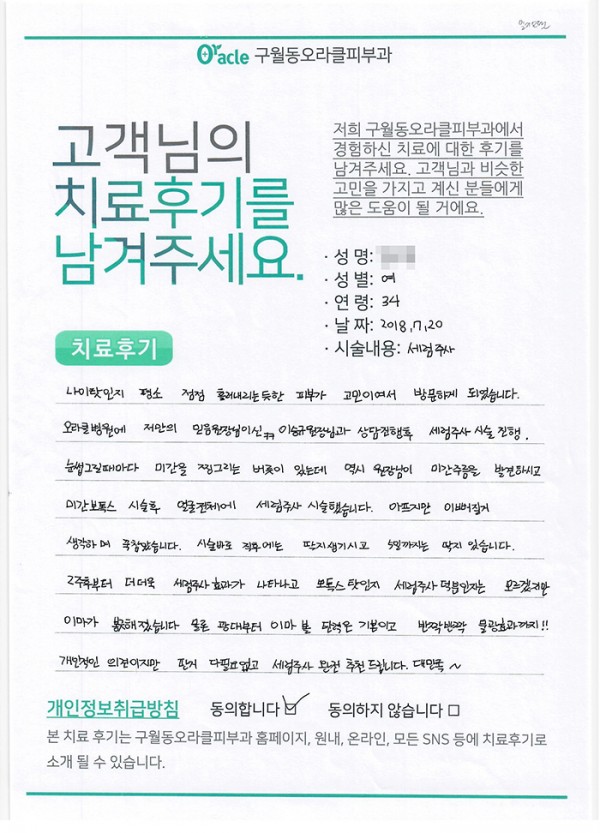 Oracle 구월동오라클피부과
고객님의
치료후기를
남겨주세요.
저희 구월동오라클피부과에서
경험하신 치료에 대한 후기를
남겨주세요. 고객님과 비슷한
고민을 가지고 계신 분들에게
많은 도움이 될 거에요.
· 성 명:
· 성 별: 여
· 연 령: 34
· 날 짜: 2018, 7, 20
· 시술내용: 세럼주사
치료후기
나이탓인지 평소 점점 흘러내리는듯한 피부가 고민이여서 방문하게 되었습니다.
오라클병원에 저만의 믿음원장님이신 이승규원장님과 상담진행후 세럼주사 시술 진행.
눈썹그릴때마다 미간을 찡그리는 버릇이 있는데 역시 원장님이 미간주름을 발견하시고
미간보톡스 시술후 얼굴전체에 세럼주사 시술했습니다. 아프지만 이뻐질거
생각하며 꾹참았습니다. 시술바로 직후에는 딱지생기시고 5일까지는 딱지 있습니다.
2주후부터 더더욱 세럼주사 효과가 나타나고 보톡스 탓인지 세럼주사 덕분인지는 모르겠지만
이마가 해졌습니다 물론 광대부터 이마 볼 탄력은 기본이고 반짝반짝 물광효과까지!!
개인적인 의견이지만 딴거 다필요없고 세럼주사 완전 추천드립니다. 대만족 ~
개인정보취급방침 동의합니다 ☑ 동의하지 않습니다 □
본 치료 후기는 구월동오라클피부과 홈페이지, 원내, 온라인, 모든 SNS 등에 치료후기로
소개 될 수 있습니다.